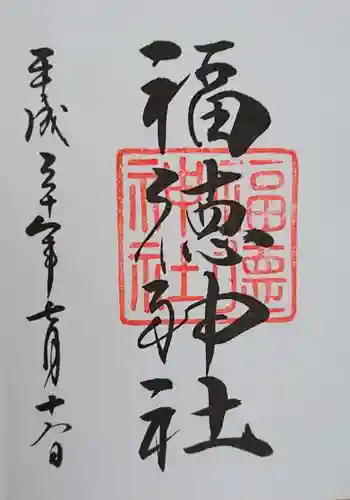 福徳神社
平成三十年七月十八日
福徳神社